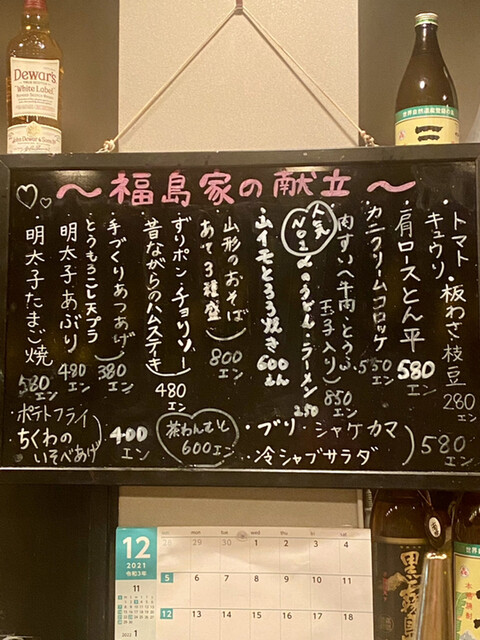 Dewar's
"White Label"
John Dewar & Sons
～福島家の献立～
・トマト・板わさ
キュウリ 枝豆
280エン
・肩ロースとん平
580エン
・カニクリームコロッケ
550エン
・肉すいへ牛肉・とうふ
玉子入り)
850エン
人気
No1
のうどん・ラーメン
250
・山イモとろろ焼き
600エん
・山形のおそば
・あて3種盛
800エン
・ずりポン・チョリソー
・昔ながらのハムステーキ
480エン
・手づくりあつあげ
・とうもろこし天プラ
380エン
・明太子あぶり
480エン
・明太子たまご焼
580エン
・ポテトフライ
・ちくわのいそべあげ
400エン
茶わんむし
600エン
・ブリ・シャケカマ
・冷シャブサラダ
580エン
12
2021
令和3年
sun mon tue wed thu fri sat
28 29 30 1 2 3 4
5 6 7 8 9 10 11
12 13 14 15 16 17 18
11
2022 1
黒霧島